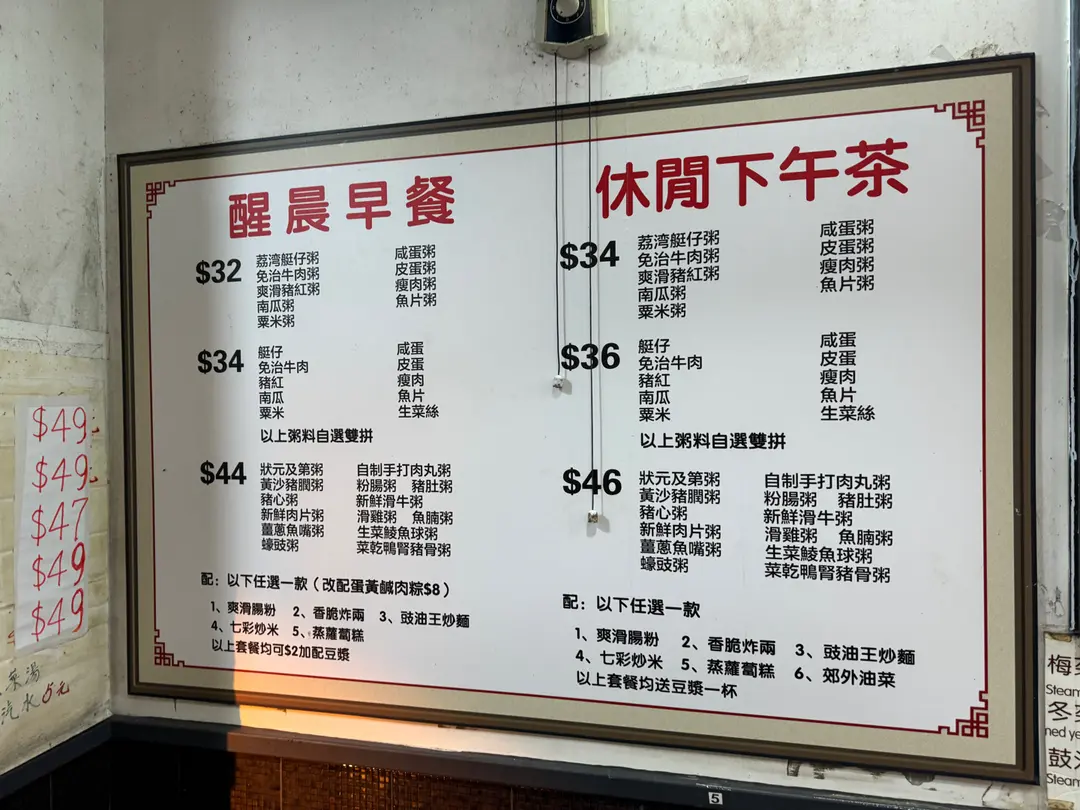 醒晨早餐
$32
荔湾艇仔粥 咸蛋粥
免治牛肉粥 皮蛋粥
爽滑豬紅粥 瘦肉粥
南瓜粥 魚片粥
粟米粥
$34
艇仔 咸蛋
免治牛肉 皮蛋
豬紅 瘦肉
南瓜 魚片
粟米 生菜絲
以上粥料自選雙拼
$44
狀元及第粥 自制手打肉丸粥
黃沙豬膶粥 粉腸粥 豬肚粥
豬心粥 新鮮滑牛粥
新鮮肉片粥 滑雞粥 魚腩粥
薑蔥魚嘴粥 生菜鯪魚球粥
蠔豉粥 菜乾鴨腎豬骨粥
配：以下任選一款（改配蛋黃鹹肉粽$8）
1、爽滑腸粉 2、香脆炸兩 3、豉油王炒麵
4、七彩炒米 5、蒸蘿蔔糕
以上套餐均可$2加配豆漿
休閒下午茶
$34
荔湾艇仔粥 咸蛋粥
免治牛肉粥 皮蛋粥
爽滑豬紅粥 瘦肉粥
南瓜粥 魚片粥
粟米粥
$36
艇仔 咸蛋
免治牛肉 皮蛋
豬紅 瘦肉
南瓜 魚片
粟米 生菜絲
以上粥料自選雙拼
$46
狀元及第粥 自制手打肉丸粥
黃沙豬膶粥 粉腸粥 豬肚粥
豬心粥 新鮮滑牛粥
新鮮肉片粥 滑雞粥 魚腩粥
薑蔥魚嘴粥 生菜鯪魚球粥
蠔豉粥 菜乾鴨腎豬骨粥
配：以下任選一款
1、爽滑腸粉 2、香脆炸兩 3、豉油王炒麵
4、七彩炒米 5、蒸蘿蔔糕 6、郊外油菜
以上套餐均送豆漿一杯
$49
$49
$47
$49
$49
菜湯
汽水5元
5
梅
Steam
冬
ned ye
豉
Steam